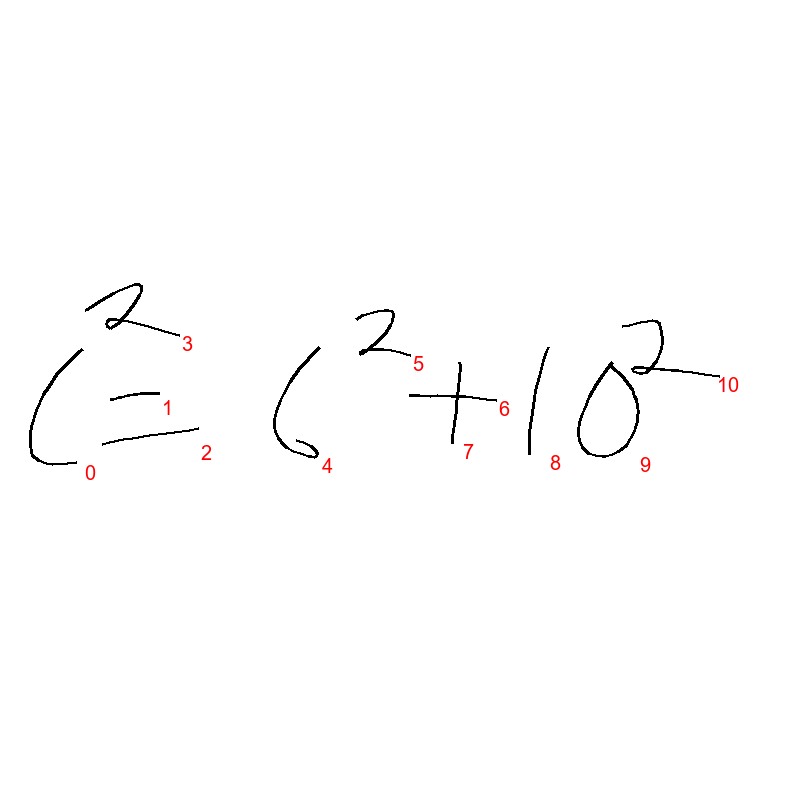 c² = 6² + 10²
0 1 2 3 4 5 6 7 8 9 10